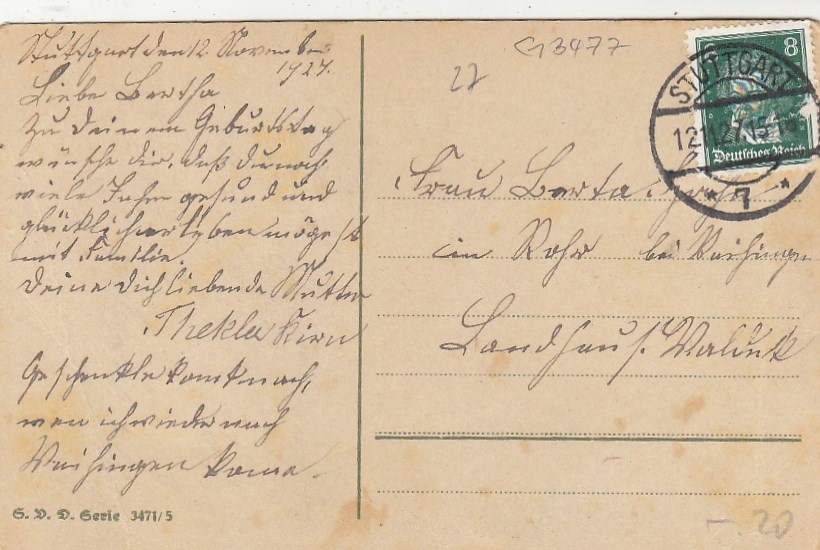 Stuttgart den 12. November
1927.
Liebe Bertha
Zu deinem Geburdstag
wünsche dir, daß du noch
viele Jahre gesund und
glücklich erleben mögest
mit Familie.
Deine dich liebende Mutter
Thekla Kirn
Geschenkle komt nach,
wen ich wieder nach
Vaihingen kome.
S. V. D. Serie 3471/5
G 3477
27
8
Deutsches Reich
STUTTGART
* 7 *
Frau Berta
in Rohr bei Vaihingen
Landhaus
-.20